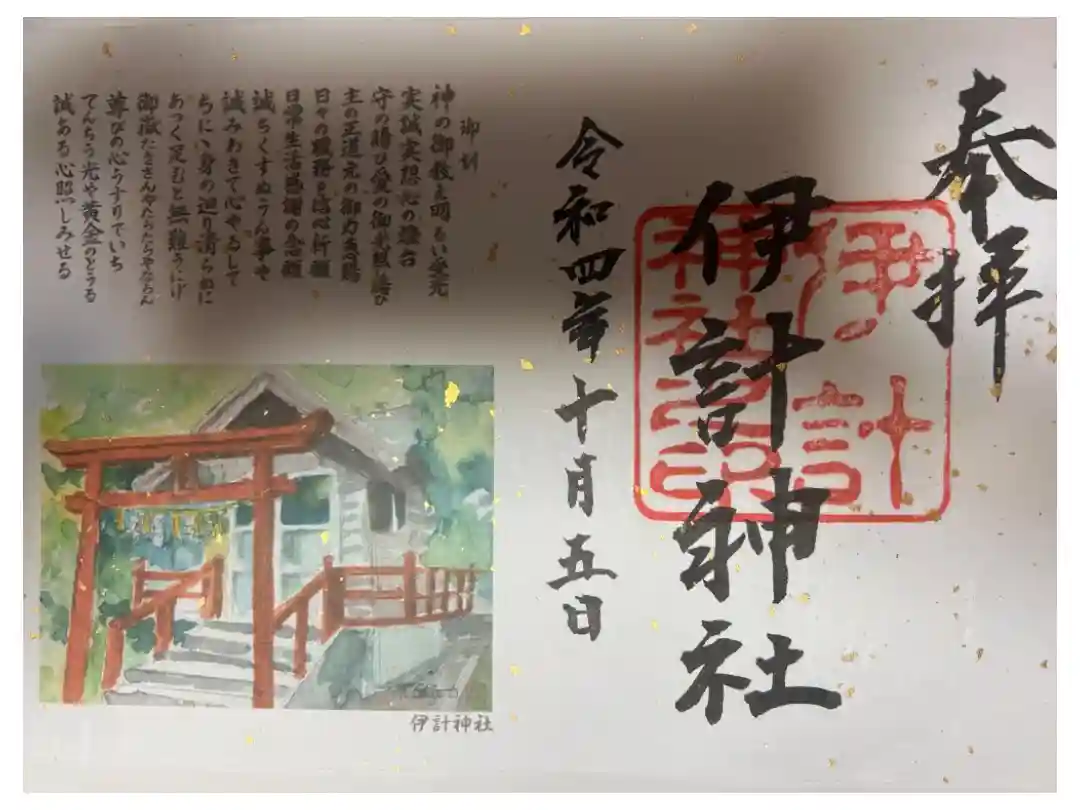 奉拝
伊計神社
伊計
神社之印
令和四年十月五日
御訓
神の御教え明るい栄光
実誠実
守の結び愛の御光照結び
主の正道元の御力
日々の職務 信心祈願
日常生活感謝の念願
誠らくすぬうん事や
誠みあきて心やるして
身の辺り清らかに
あつく足むと無難
御嶽たきさんやたらたらやならん
尊びの心うすりていち
てんぢう光や黄金のどぅる
誠ある心照しみせる
伊計神社